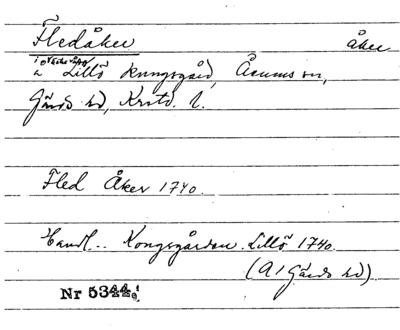 Fledåker åker
å Lillö kungsgård, Åsums sn,
Gärds hd, Krstd. l.
Fled Åker 1740.
Handl... Kongsgården. Lillö 1740.
(A1 Gärds hd)
Nr 5344